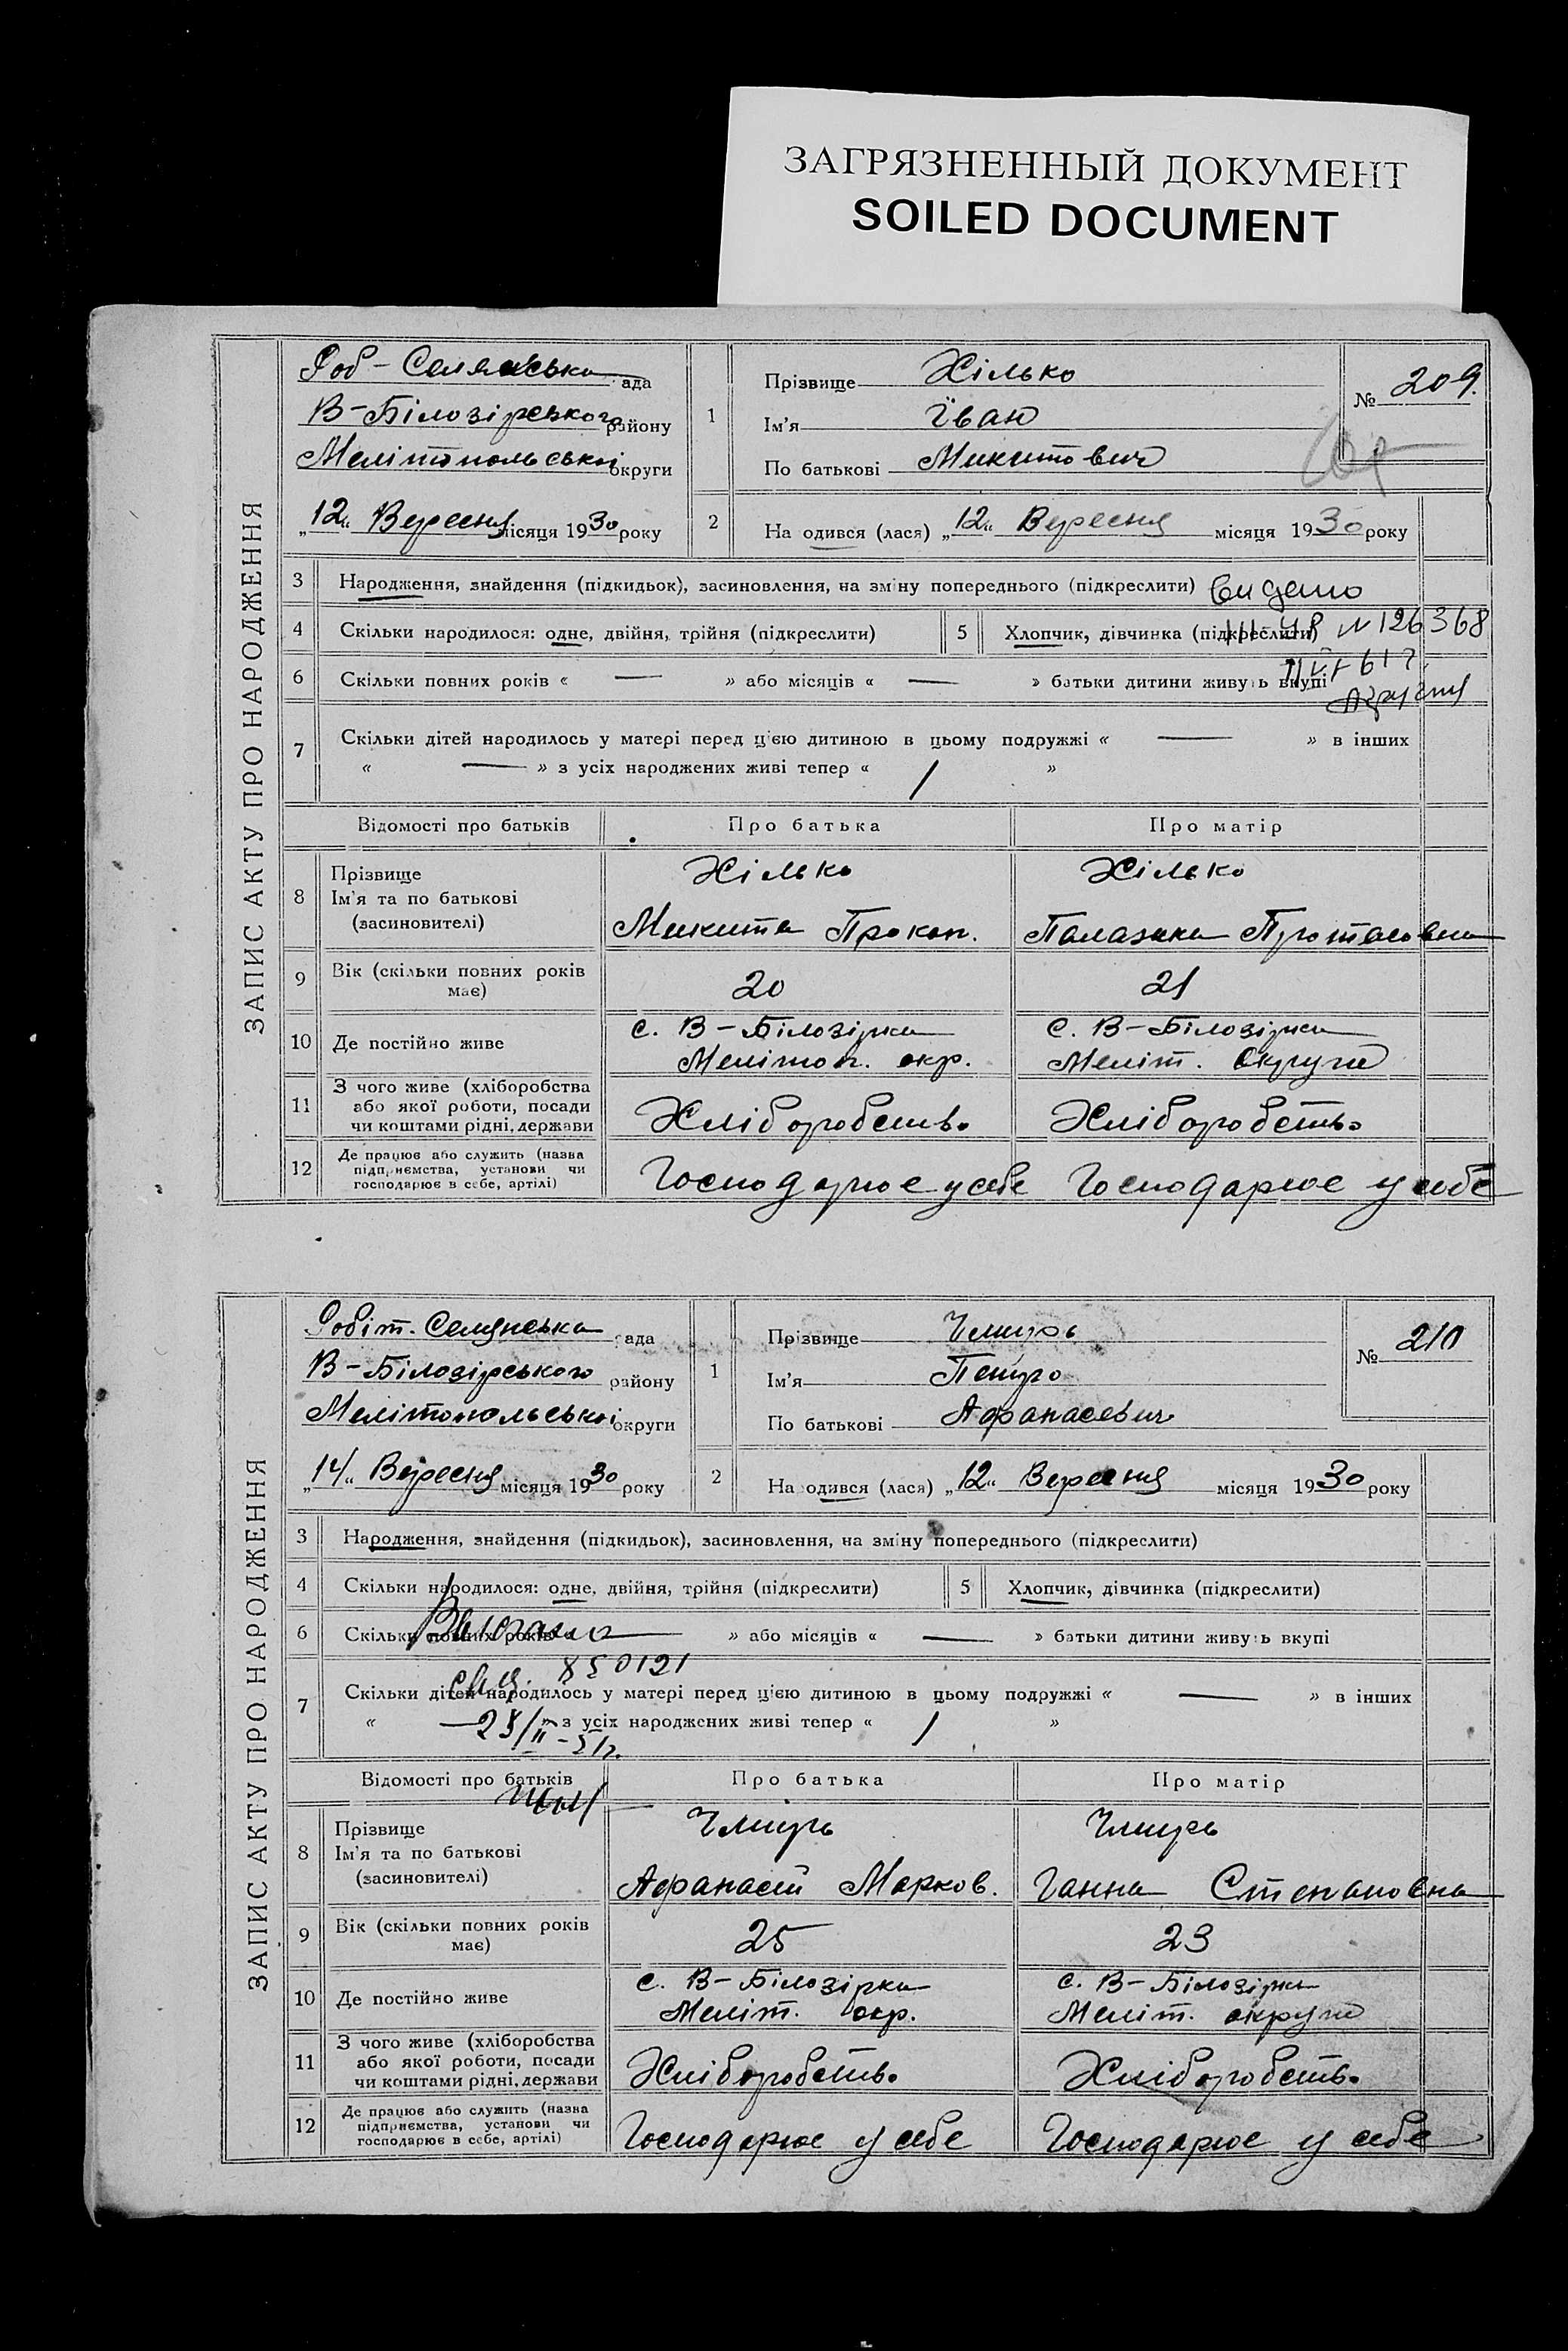 ЗАГРЯЗНЕННЫЙ ДОКУМЕНТ
SOILED DOCUMENT
ЗАПИС АКТУ ПРО НАРОДЖЕННЯ
Роб-Селянська рада
В-Білозірського району
Мелітопольської округи
„12“ Вересня місяця 1930 року
1
Прізвище Хілько
Ім'я Іван
По батькові Микитович
№ 209.
2
Народився (лася) „12“ Вересня місяця 1930 року
3 Народження, знайдення (підкидьок), засиновлення, на зміну попереднього (підкреслити) видано
4 Скільки народилося: одне, двійня, трійня (підкреслити) 5 Хлопчик, дівчинка (підкреслити) № 126368
6 Скільки повних років « — » або місяців « — » батьки дитини живуть вкупі
7 Скільки дітей народилось у матері перед цією дитиною в цьому подружжі « — » в інших
« — » з усіх народжених живі тепер « 1 »
Відомості про батьків Про батька Про матір
8 Прізвище
Ім'я та по батькові
(засиновителі)
Хілько
Микита Прокоп.
Хілько
Палажка Протасовна
9 Вік (скільки повних років має) 20 21
10 Де постійно живе
с. В-Білозірка
Мелітоп. окр.
с. В-Білозірка
Меліт. Округи
11 З чого живе (хліборобства
або якої роботи, посади
чи коштами рідні, держави
Хліборобств. Хліборобств.
12 Де працює або служить (назва
підприємства, установи чи
господарює в себе, артілі)
Господарює у себе Господарює у себе
ЗАПИС АКТУ ПРО НАРОДЖЕННЯ
Робіт.-Селянська рада
В-Білозірського району
Мелітопольської округи
„14“ Вересня місяця 1930 року
1
Прізвище Чмирь
Ім'я Петро
По батькові Афанасевич
№ 210
2
Народився (лася) „12“ Вересня місяця 1930 року
3 Народження, знайдення (підкидьок), засиновлення, на зміну попереднього (підкреслити)
4 Скільки народилося: одне, двійня, трійня (підкреслити) 5 Хлопчик, дівчинка (підкреслити)
6 Скільки повних років « — » або місяців « — » батьки дитини живуть вкупі
7 Скільки дітей народилось у матері перед цією дитиною в цьому подружжі « — » в інших
« — » з усіх народжених живі тепер « 1 »
Відомості про батьків Про батька Про матір
8 Прізвище
Ім'я та по батькові
(засиновителі)
Чмирь
Афанасій Марков.
Чмирь
Ганна Степановна
9 Вік (скільки повних років має) 25 23
10 Де постійно живе
с. В-Білозірка
Меліт. окр.
с. В-Білозірка
Меліт. округи
11 З чого живе (хліборобства
або якої роботи, посади
чи коштами рідні, держави
Хліборобств. Хліборобств.
12 Де працює або служить (назва
підприємства, установи чи
господарює в себе, артілі)
Господарює у себе Господарює у себе